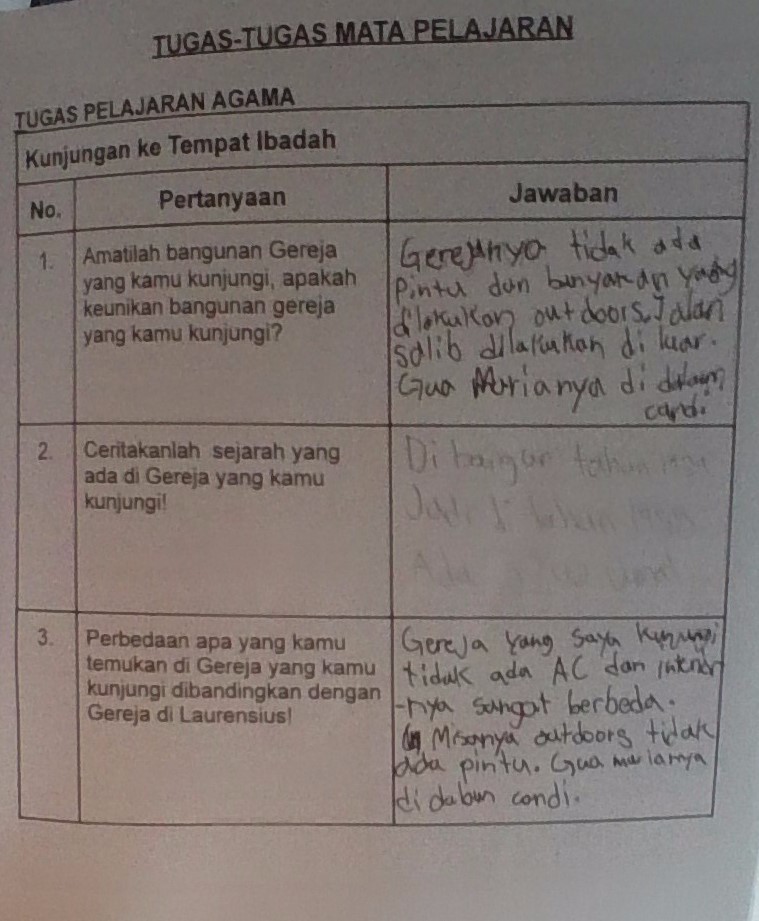 TUGAS-TUGAS MATA PELAJARAN
TUGAS PELAJARAN AGAMA
Kunjungan ke Tempat Ibadah
No.
Pertanyaan
Jawaban
1.
Amatilah bangunan Gereja
yang kamu kunjungi, apakah
keunikan bangunan gereja
yang kamu kunjungi?
Gerejanya tidak ada
pintu dan yang
dilakukan outdoors. Jalan
salib dilakukan di luar.
Gua Marianya di dalam
candi
2.
Ceritakanlah sejarah yang
ada di Gereja yang kamu
kunjungi!
Di bangun tahun
Jadi di tahun
Ada umat
3.
Perbedaan apa yang kamu
temukan di Gereja yang kamu
kunjungi dibandingkan dengan
Gereja di Laurensius!
Gereja yang saya kunjungi
tidak ada AC dan interior
-nya sangat berbeda.
Misanya outdoors tidak
ada pintu. Gua marianya
di candi.